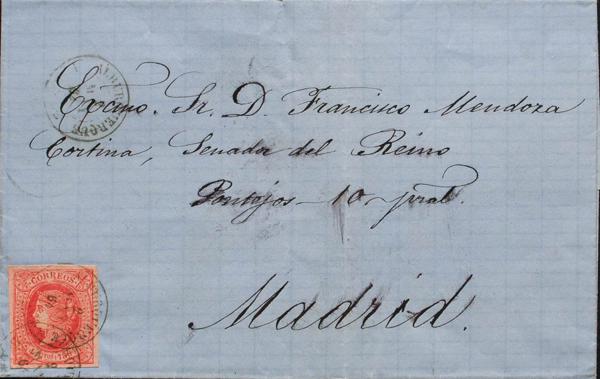 ALBURQUERQUE
Excmo. Sr. D. Francisco Mendoza
Cortina, Senador del Reino
Pontejos - 10 - pral.
Madrid.
CORREOS